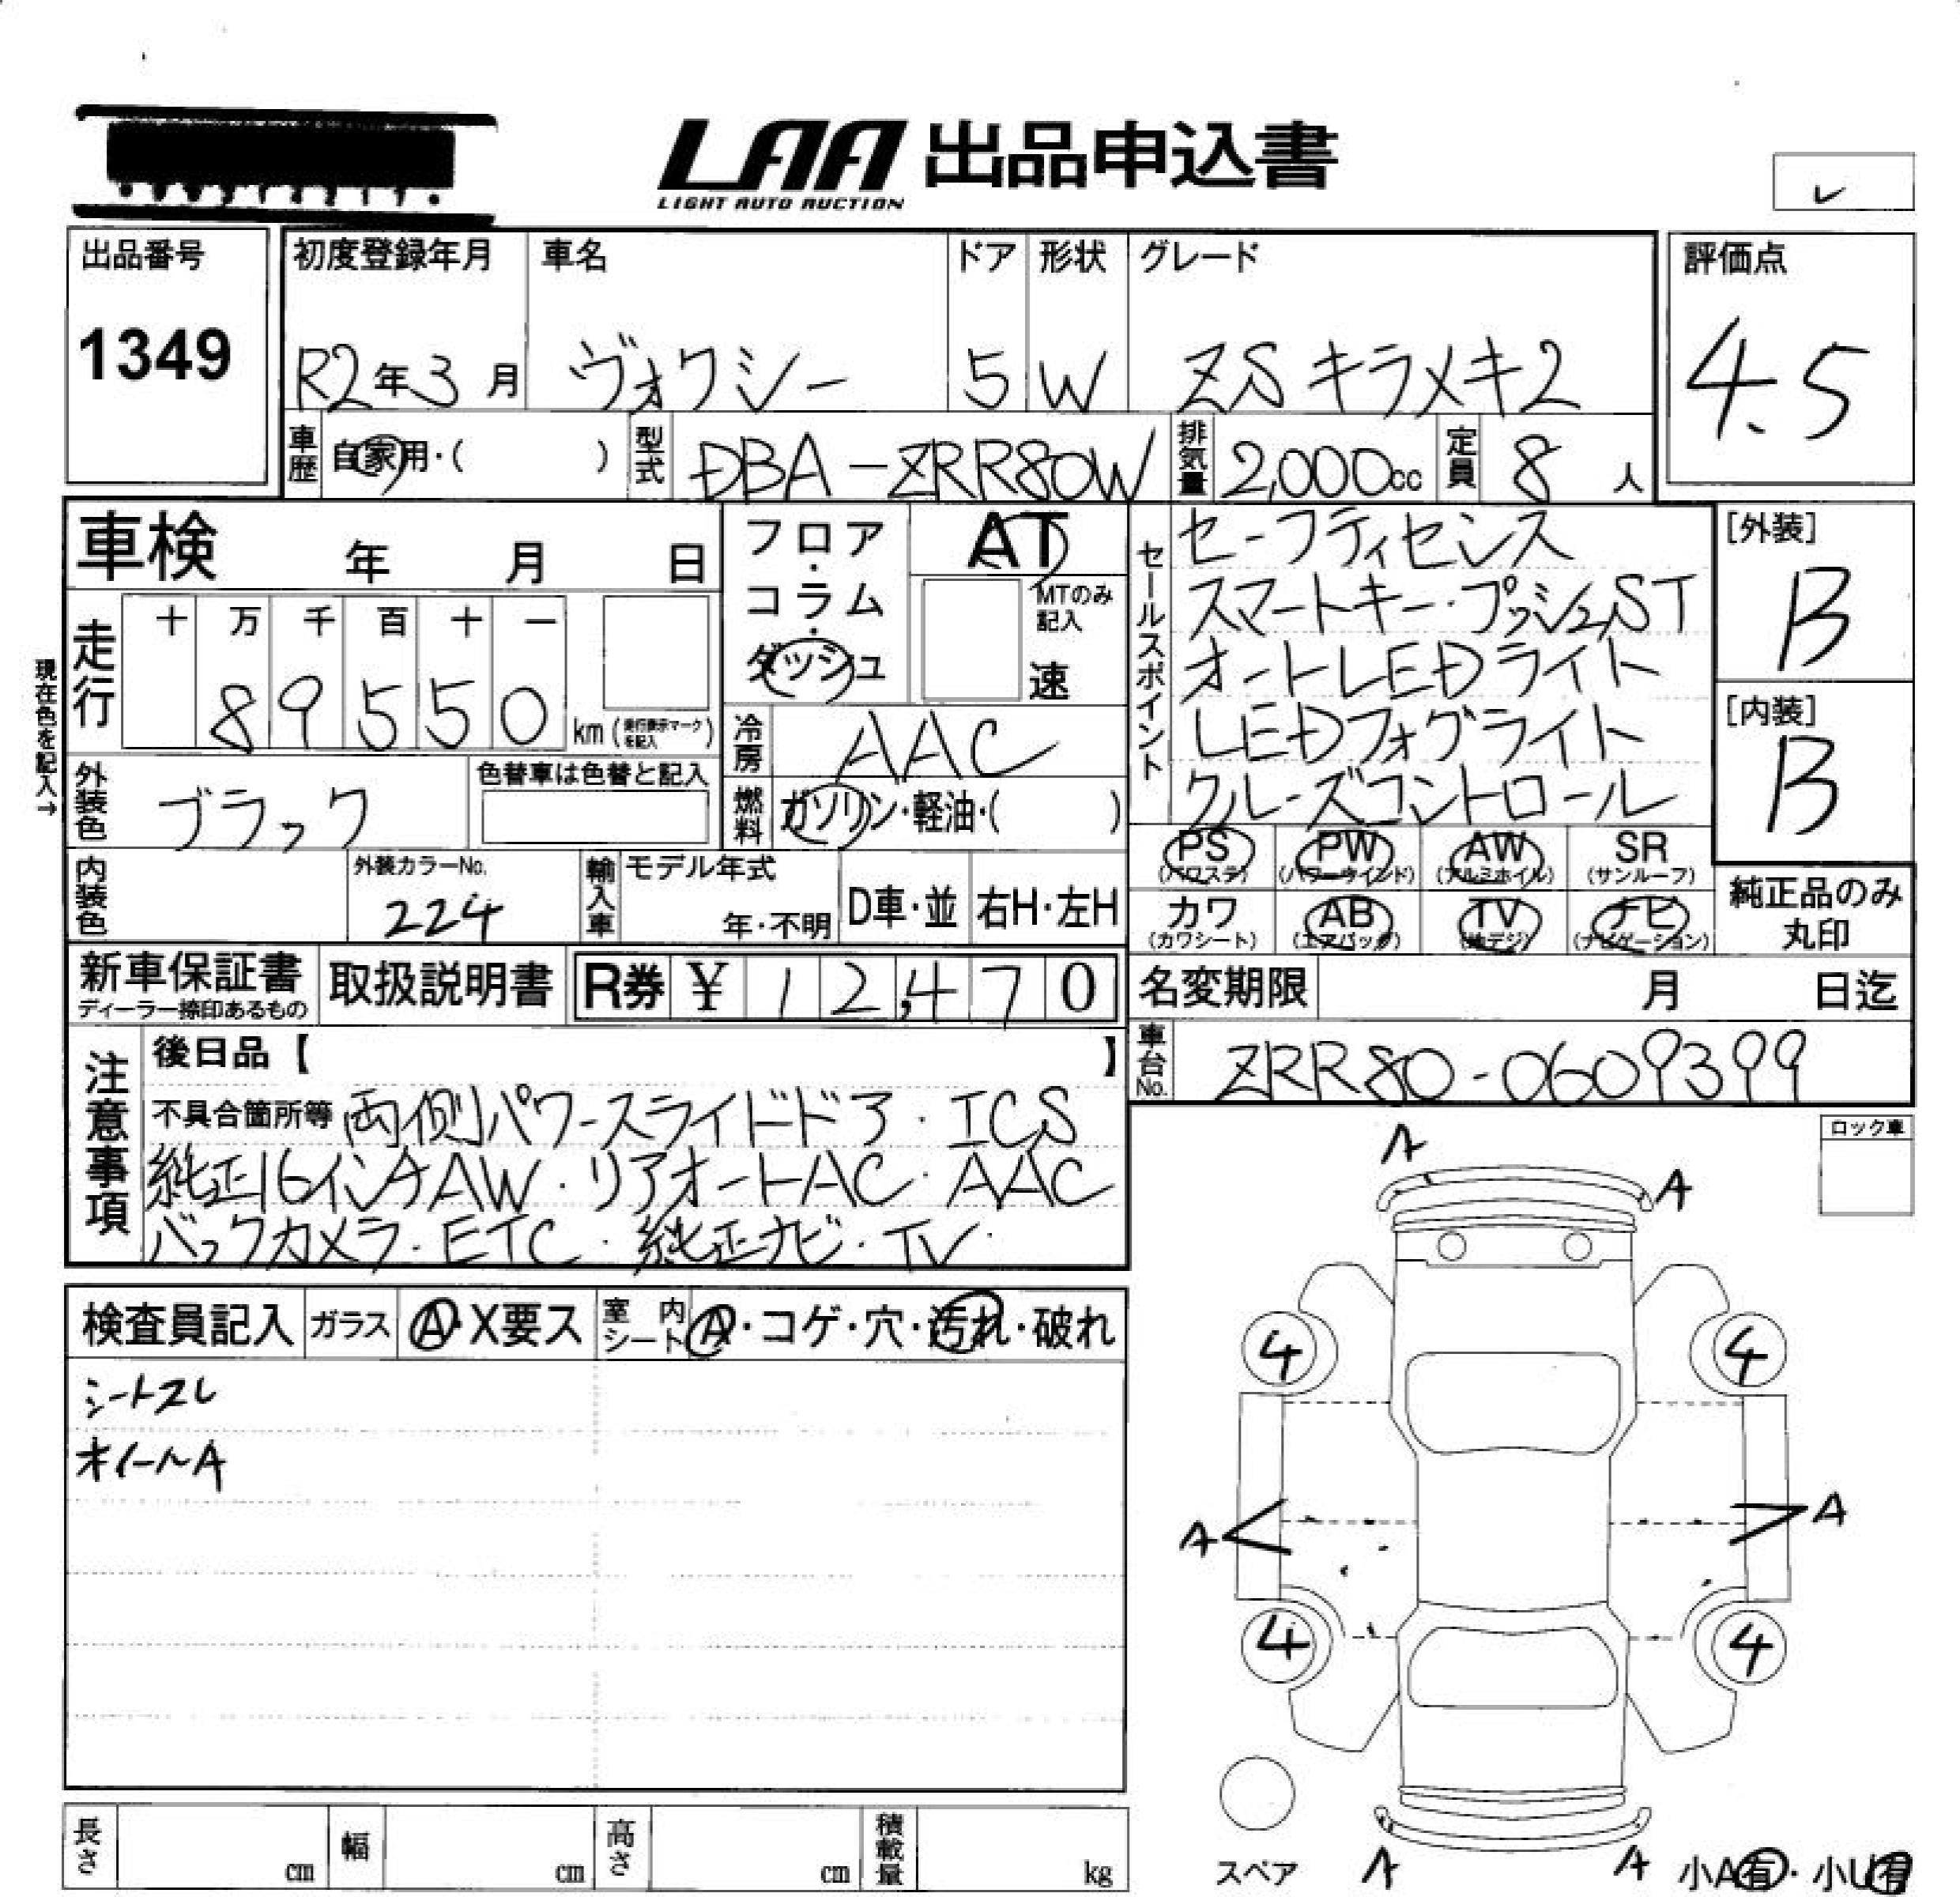 LAA 出品申込書
LIGHT AUTO AUCTION
出品番号
1349
初度登録年月 車名 ドア 形状 グレード
R2年3月 ヴォクシー 5 W ZSキラメキ2
評価点
4.5
車歴 自家用・( ) 型式 DBA-ZRR80W 排気量 2,000cc 定員 8人
車検 年 月 日
フロア・コラム・ダッシュ
AT
MTのみ記入
速
走行 十 万 千 百 十 一
89550 km (走行表示マークを記入)
現在色を記入→
冷房 AAC
外装色 ブラック
色替車は色替と記入
燃料 ガソリン・軽油・( )
内装色
外装カラーNo.
224
輸入車 モデル年式
年・不明 D車・並 右H・左H
セールスポイント
セーフティセンス
スマートキー・プッシュST
オートLEDライト
LEDフォグライト
クルーズコントロール
[外装]
B
[内装]
B
PS PW AW SR
(パワステ) (パワーウインド) (アルミホイル) (サンルーフ)
カワ AB TV ナビ
(カワシート) (エアバッグ) (地デジ) (ナビゲーション)
純正品のみ
丸印
新車保証書
ディーラー捺印あるもの
取扱説明書 R券 ¥ 12,470
名変期限 月 日迄
車台No. ZRR80-0609399
注意事項
後日品【 】
不具合箇所等 両側パワースライドドア・ICS
純正16インチAW・リアオートAC・AAC
バックカメラ・ETC・純正ナビ・TV・
検査員記入 ガラス A・X要ス 室内シート A・コゲ・穴・汚れ・破れ
シートスレ
ホイールA
ロック車
A
A
4 4
A A
4 4
スペア A A 小A有・小U有
長さ cm 幅 cm 高さ cm 積載量 kg